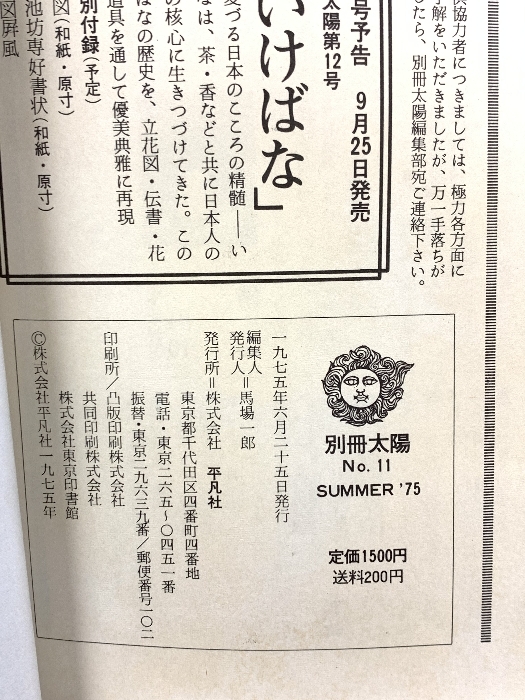 供協力者につきましては、極力各方面に
了解をいただきましたが、万一手落ちが
したら、別冊太陽編集部宛ご連絡下さい。
号予告 9月25日発売
太陽第12号
いけばな」
変づる日本のこころの精髄——い
なは、茶・香などと共に日本人の
の核心に生きつづけてきた。この
ばなの歴史を、立花図・伝書・花
道具を通して優美典雅に再現
別付録(予定)
図(和紙・原寸)
池坊専好書状(和紙・原寸)
図屛風
別冊太陽
No. 11
SUMMER '75
定価1500円
送料200円
一九七五年六月二十五日発行
編集人
発行人=馬場一郎
発行所=株式会社 平凡社
東京都千代田区四番町四番地
電話・東京二六五〜〇四五一番
振替・東京二九六三九番/郵便番号一〇二
印刷所/凸版印刷株式会社
共同印刷株式会社
株式会社東京印書館
©株式会社平凡社一九七五年